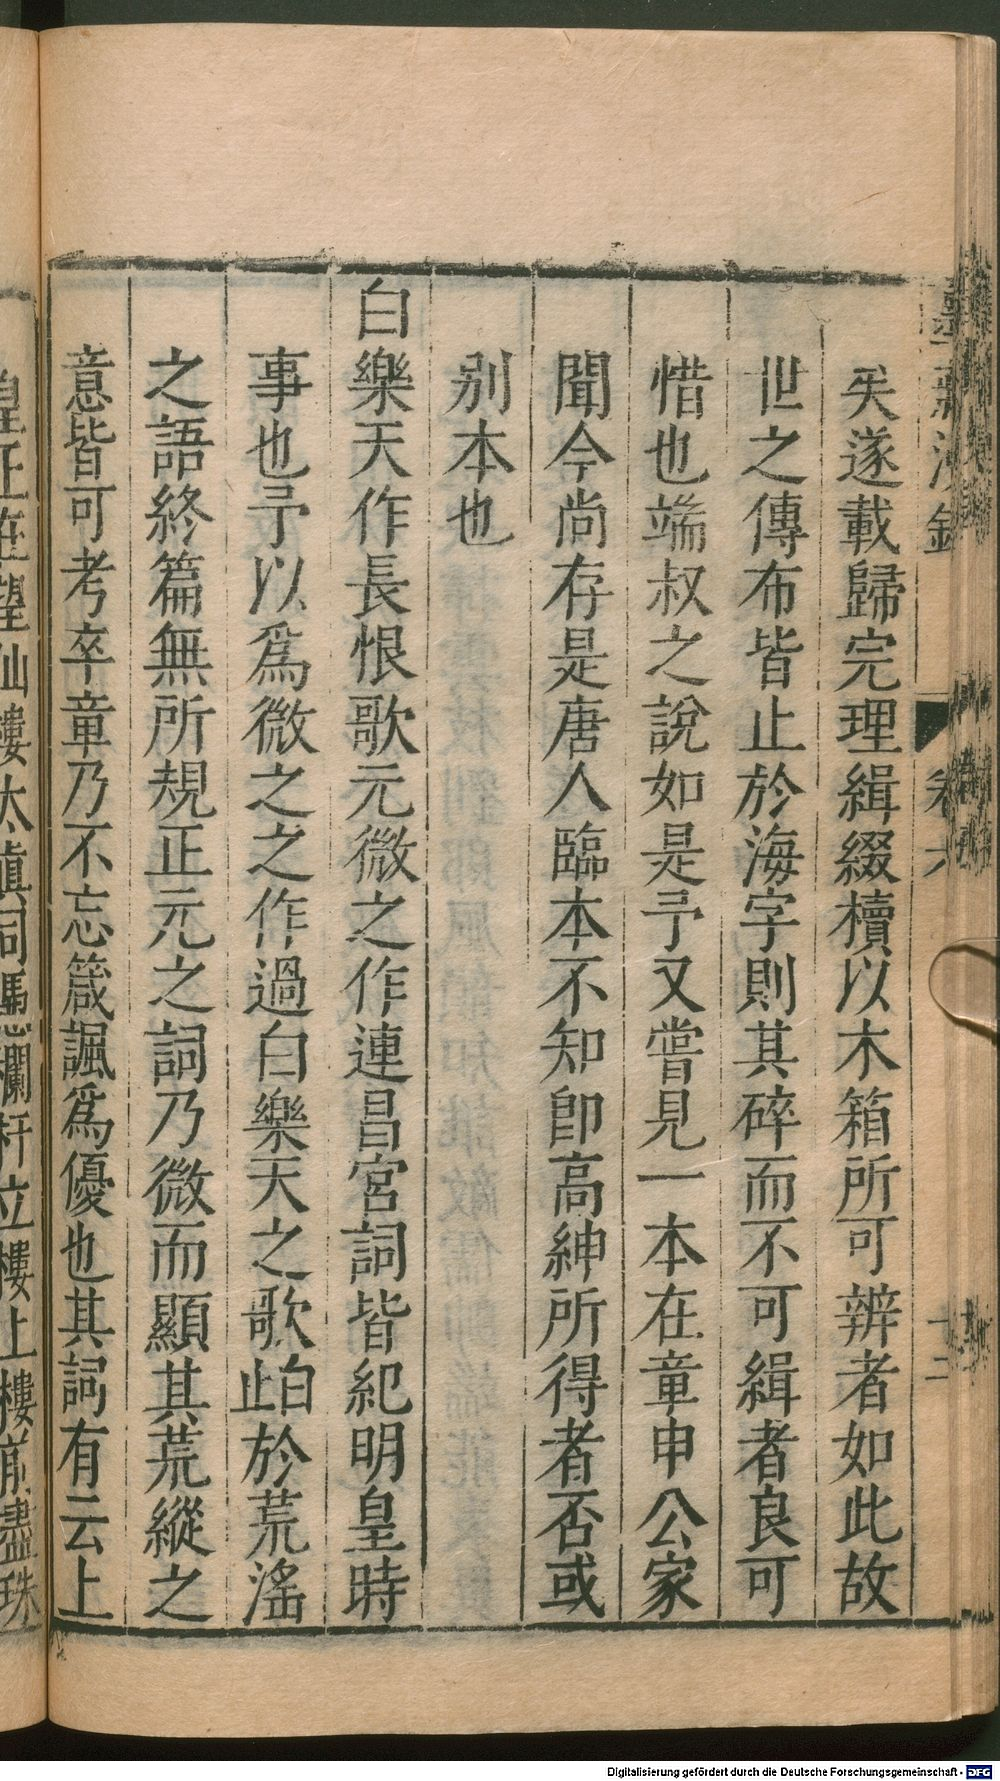 矣遂載歸完理緝綴櫝以木箱所可辨者如此故
世之傳布皆止於海字則其碎而不可緝者良可
惜也端叔之說如是予又嘗見一本在章申公家
聞今尚存是唐人臨本不知卽高紳所得者否或
别本也
白樂天作長恨歌元微之作連昌宮詞皆紀明皇時
事也予以爲微之之作過白樂天之歌白止於荒滛
之語終篇無所規正元之詞乃微而顯其荒縱之
意皆可考卒章乃不忘箴諷爲優也其詞有云上
皇正在望仙樓太真同凴欄杆立樓上樓前盡珠
卷六
十二
Digitalisierung gefördert durch die Deutsche Forschungsgemeinschaft - DFG